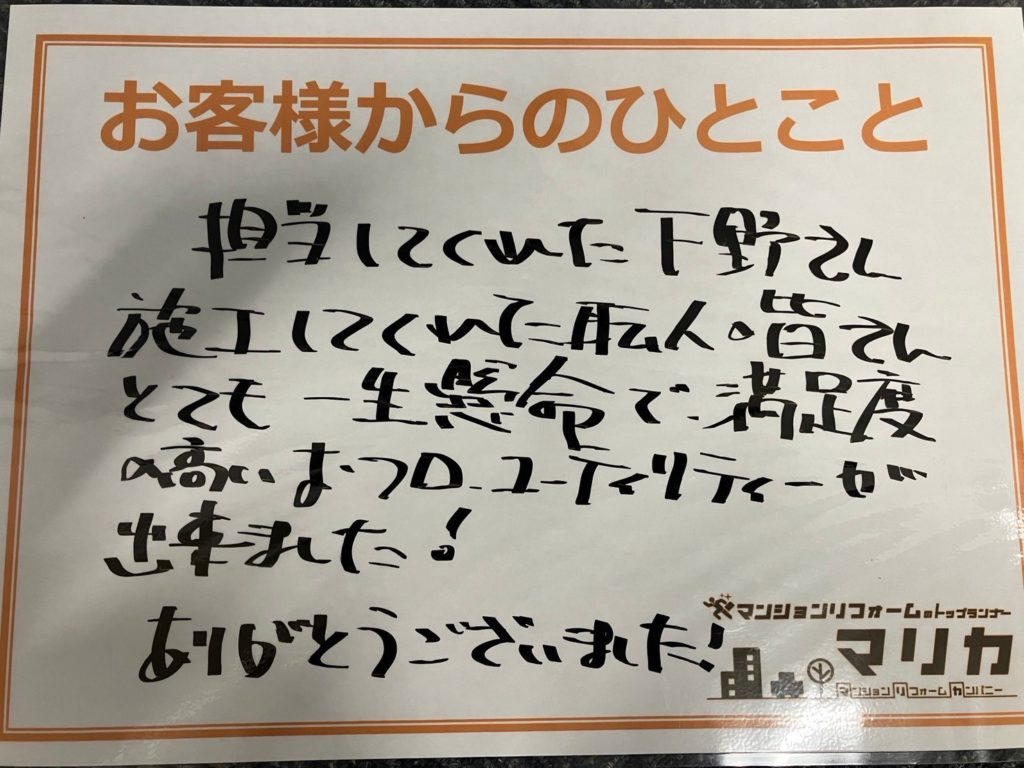 お客様からのひとこと
担当してくれた下野さん
施工してくれた職人の皆さん
とても一生懸命で、満足度
の高いおフロ、ユーティリティーが
出来ました!
ありがとうございました!
マンションリフォームのトップランナー
マリカ
マンションリフォームカンパニー